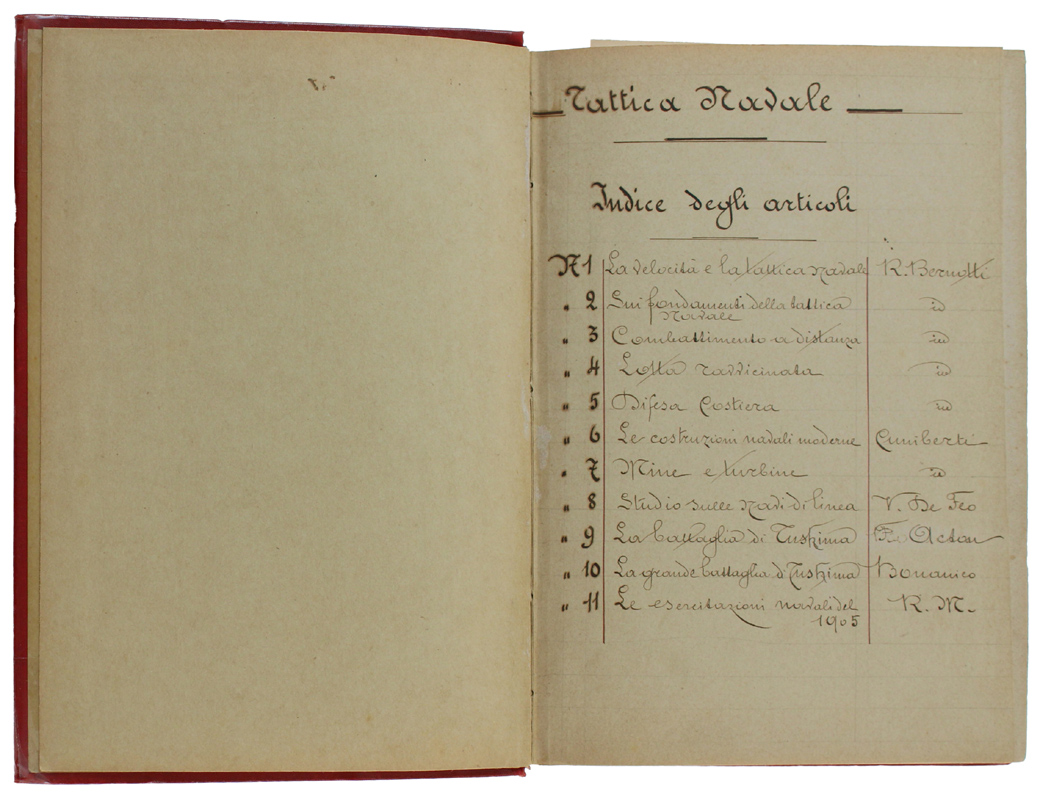 Tattica Navale
Indice degli articoli
N 1 La velocità e la tattica navale R. Bernotti
" 2 Sui fondamenti della tattica id
Navale
" 3 Combattimento a distanza id
" 4 Lotta ravvicinata id
" 5 Difesa Costiera id
" 6 Le costruzioni navali moderne Cuniberti
" 7 Mine e turbine id
" 8 Studio sulle Navi di linea V. De Feo
" 9 La battaglia di Tushima Acton
" 10 La grande battaglia di Tushima Bonamico
" 11 Le esercitazioni navali del R. M.
1905